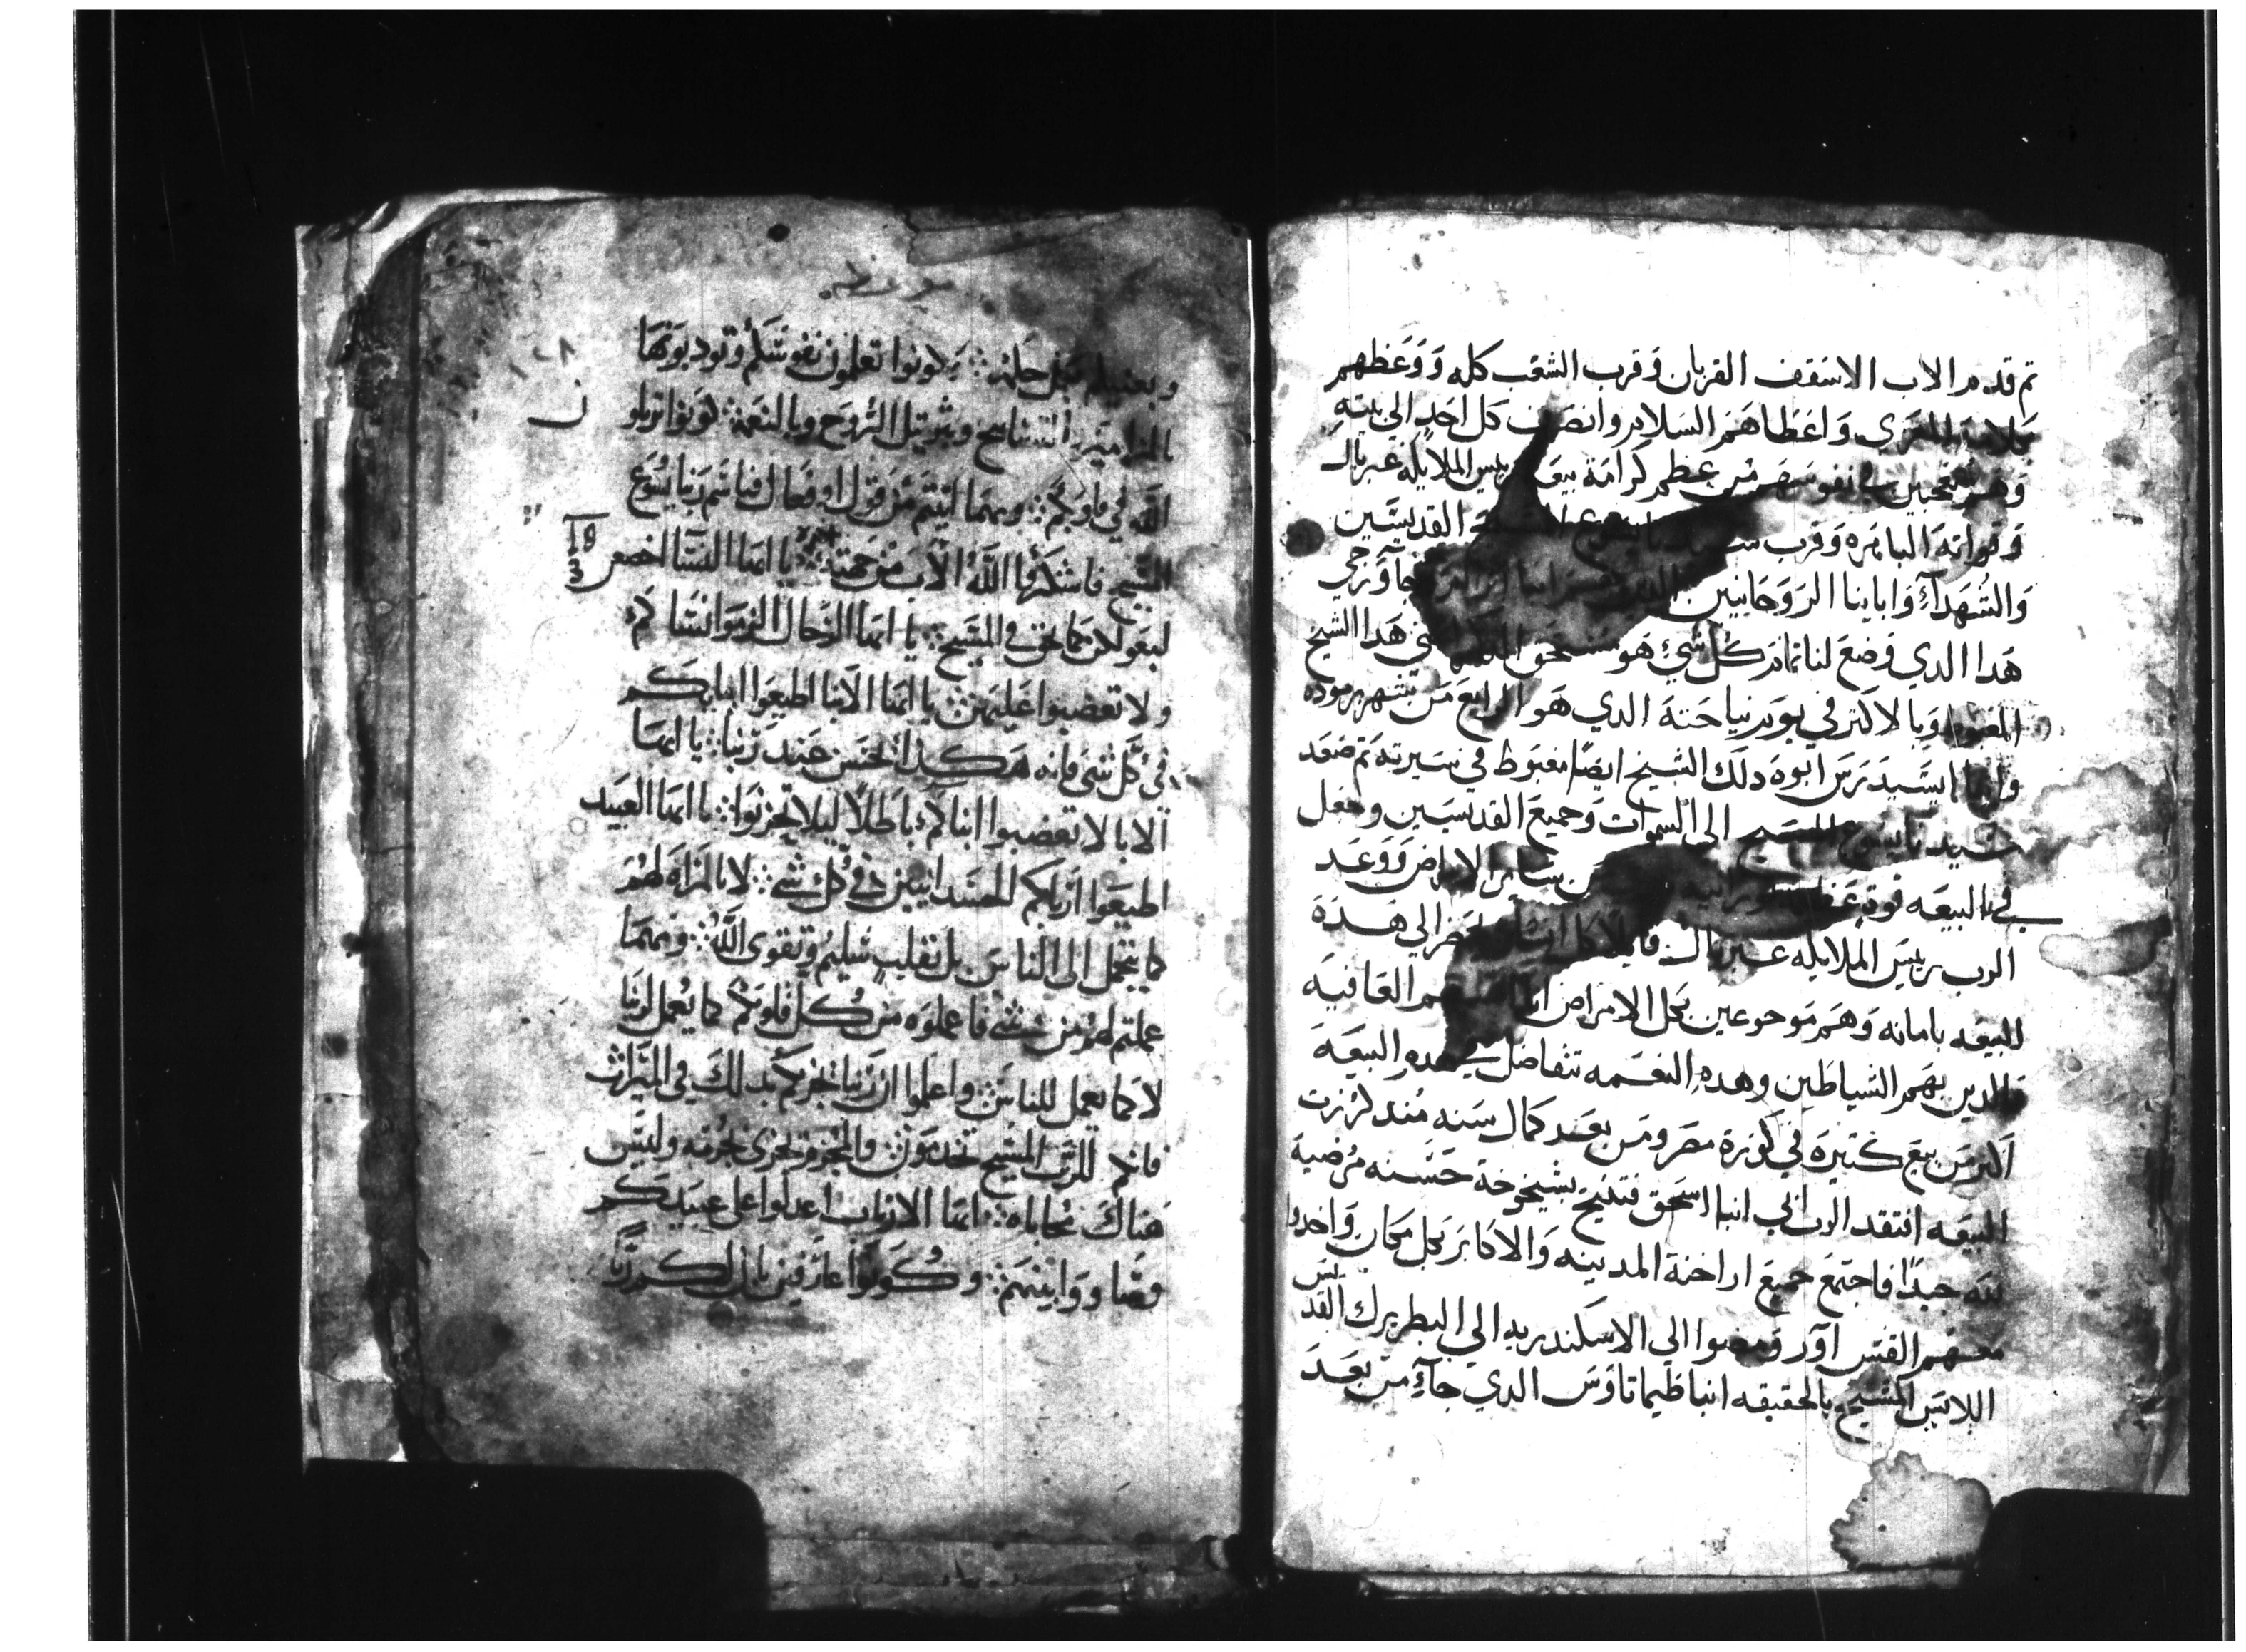 تم قدم الاب الاسقف القربان وقرب الشعب كله ووعظهم
واعطاهم السلام وانصرف كل احد الي بيته
وهم متعجبين في نفوسهم من عظم كرامة بيعة رييس الملايكه غبريال
وقواته الباهره وقرب القديسين
والشهدآء واباينا الروحانيين
هدا الدي وضع لنا تدكار كل شي هو مستحق هدا الشيخ
المغبوط وبالاكتر في يوم نياحته الدي هو الرابع من شهر برموده
ابوه دلك الشيخ ايضا مغبوط في سيرته تم صعد
سيدنا يسوع المسيح الي السموات وجميع القديسين وجعل
في البيعه قوة عظيمه ساير الامراض ووعد
الرب رييس الملايكه غبريال فايلا كل انسان يحضر الي هده
البيعه بامانه وهم موجوعين بكل الامراض العافيه
والدين بهم الشياطين وهده النعمه تتفاضل في هده البيعه
اكتر من بيع كتيره في كورة مصر ومن بعد كمال سنه مند كرزت
البيعه افتقد الرب ابي انبا اسحق فتنيح بشيخوخة حسنه مرضية
لله جيدا فاجتمع جميع اراخنة المدينه والاكابر بكل مكان واخدوا
معهم القس آور ومضوا الي الاسكندريه الي البطريرك القديس
اللابس المسيح بالحقيقه انبا ظيماتاوس الدي جآء من بعد
١٢٨
وبعضكم تعلمون نفوسكم وتودبونها
بالمزامير والتسابيح وبترتيل الروح وبالنعمة كونوا ترتلو
الله في قلوبكم ومهما اتيتم من قول او فعال فباسم ربنا يسوع
المسيح فاشكروا الله الاب من جهته يا ايها النسا اخضعن
19
3
لبعولكن كما يحق في المسيح يا ايها الرجال الزموا نساكم
ولا تغضبوا عليهن يا ايها الابنا اطيعوا ابايكم
في كل شي فانه هكدا يحسن عند ربنا يا ايها
الابا لا تغضبوا ابناكم باطلا ليلا يحزنوا يا ايها العبيد
اطيعوا اربابكم الجسدانيين في كل شي لا بالمراه لهم
كما يتجمل الي الناس بل بقلب سليم وتقوي الله ومهما
عملتم لهم من شي فاعملوه من كل قلوبكم كما يعمل لربنا
لا كما يعمل للناس واعلموا ان ربنا يجزيكم بدلك في الميراث
فانكم للرب المسيح تخدمون والمجرم يجزي بجرمه وليس
هناك محاباه ايها الارباب اعدلوا علي عبيدكم
وساووا بينهم وكونوا عارفين بان لكم ربا